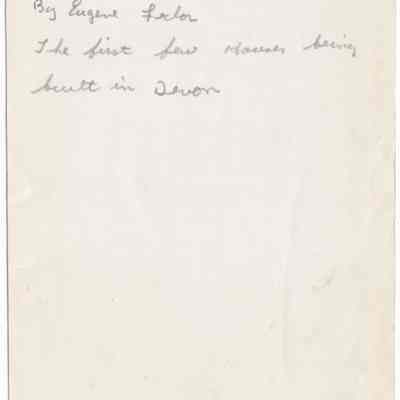 By Eugene
The first few Houses being
built in Devon